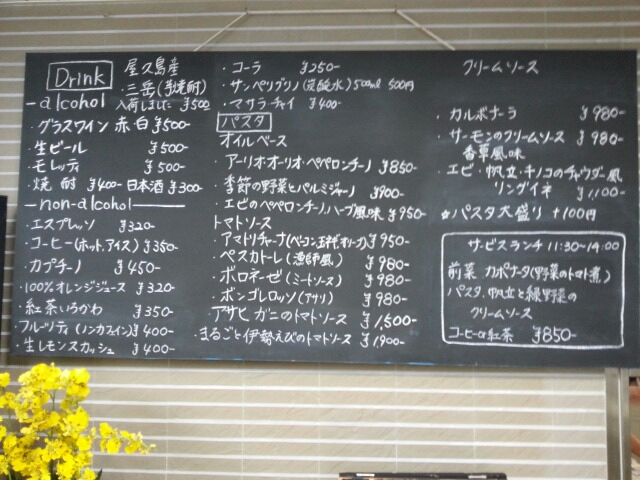 Drink
屋久島産
・三岳(芋焼酎)
入荷しました ¥500
alcohol
・グラスワイン 赤・白 ¥500-
・生ビール ¥500-
・モレッティ ¥500-
・焼酎 ¥400- 日本酒 ¥300-
non-alcohol
・エスプレッソ ¥320-
・コーヒー(ホット,アイス) ¥350-
・カプチーノ ¥450-
・100%オレンジジュース ¥320-
・紅茶いろかわ ¥350-
・フルーツティ(ノンカフェイン) ¥400-
・生レモンスカッシュ ¥400-
・コーラ ¥250-
・サンペリグリノ(炭酸水)500ml 500円
・マサラチャイ ¥400-
パスタ
オイルベース
・アーリオ・オーリオ・ペペロンチーノ ¥850-
・季節の野菜とパルミジャーノ ¥900-
・エビのペペロンチーノ,ハーブ風味 ¥950-
トマトソース
・アマトリチャーナ(ベーコン,玉ネギ,チーズ) ¥950-
・ペスカトーレ(漁師風) ¥980-
・ボロネーゼ(ミートソース) ¥980-
・ボンゴレロッソ(アサリ) ¥980-
・アサヒガニのトマトソース ¥1,500-
・まるごと伊勢えびのトマトソース ¥1900-
クリームソース
・カルボナーラ ¥980-
・サーモンのクリームソース ¥980-
香草風味
・エビ・帆立・キノコのチャウダー風
リングイネ ¥1,100-
☆パスタ大盛り +100円
サービスランチ 11:30~14:00
前菜 カポナータ(野菜のトマト煮)
パスタ、帆立と緑野菜の
クリームソース
コーヒーor紅茶 ¥850-